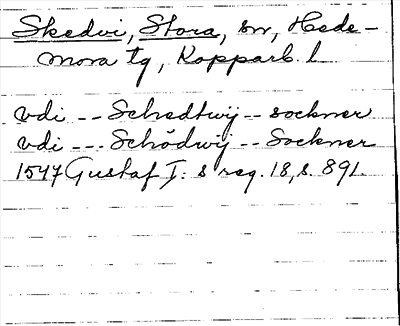 Skedvi, Stora, sn, Hede-
mora tg, Kopparb. l
vdi -- Schedtwij -- sockner
vdi --- Schödwij -- Sockner
1547 Gustaf I:s reg. 18, s. 891.